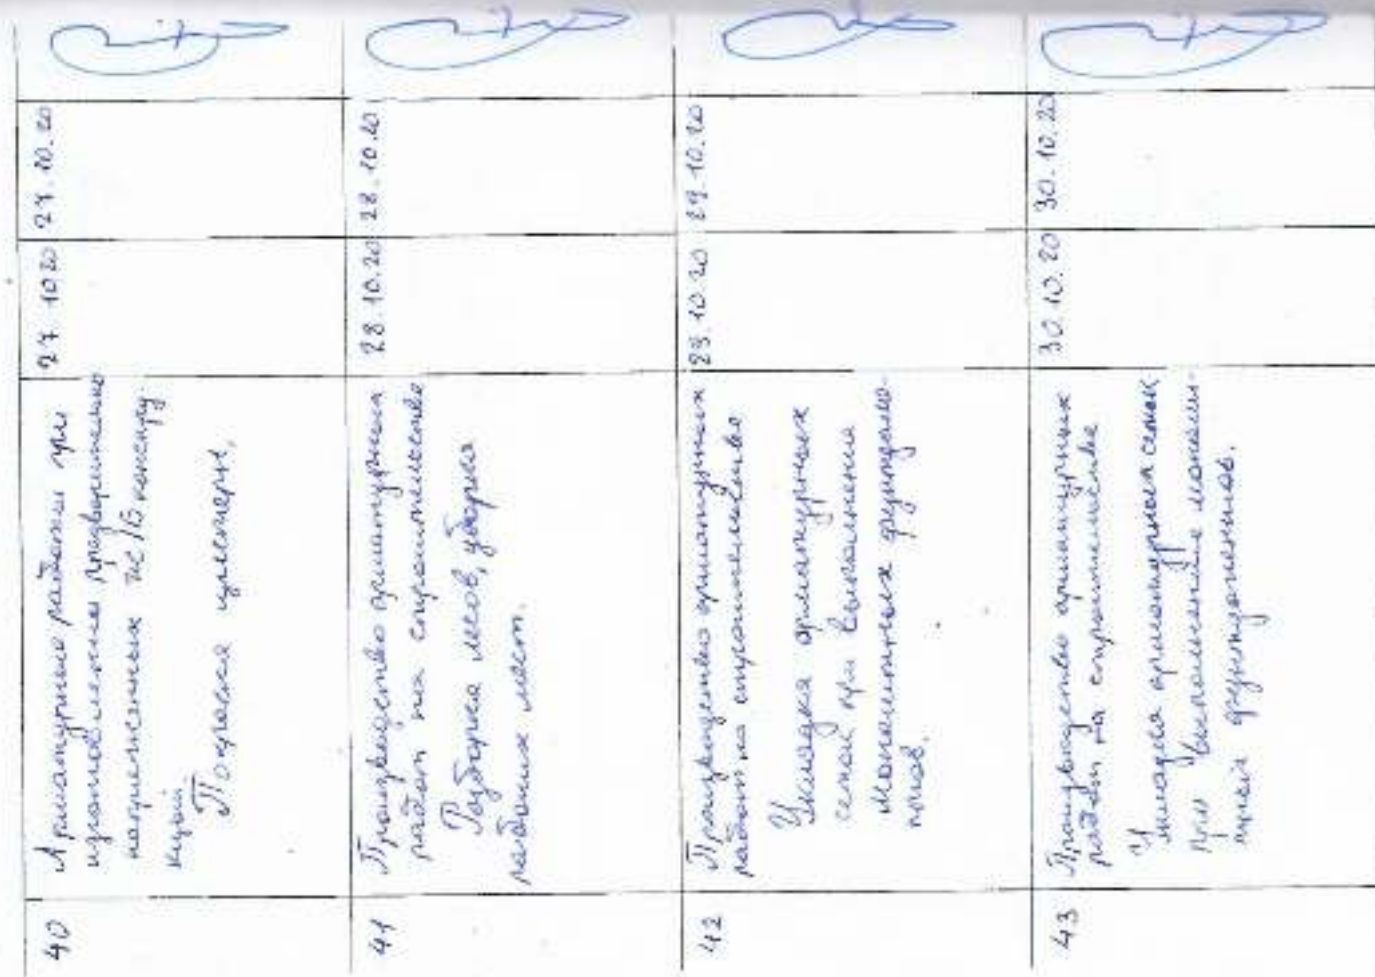 40
Арматурные работы при
изготовлении предварительно
напряженных ж/б констру
кций
Покраска
27 10 20
27.10.20
41
Производство арматурных
работ на строительстве
Разборка лесов, уборка
рабочих мест.
28.10.20
28.10.20
42
Производство арматурных
работ на строительстве
Укладка арматурных
сеток при выполнении
монолитных фундаме-
нтов.
29.10.20
29.10.20
43
Производство арматурных
работ на строительстве
Укладка арматурных сеток
при выполнение монолит-
фундаментов.
30.10.20
30.10.20